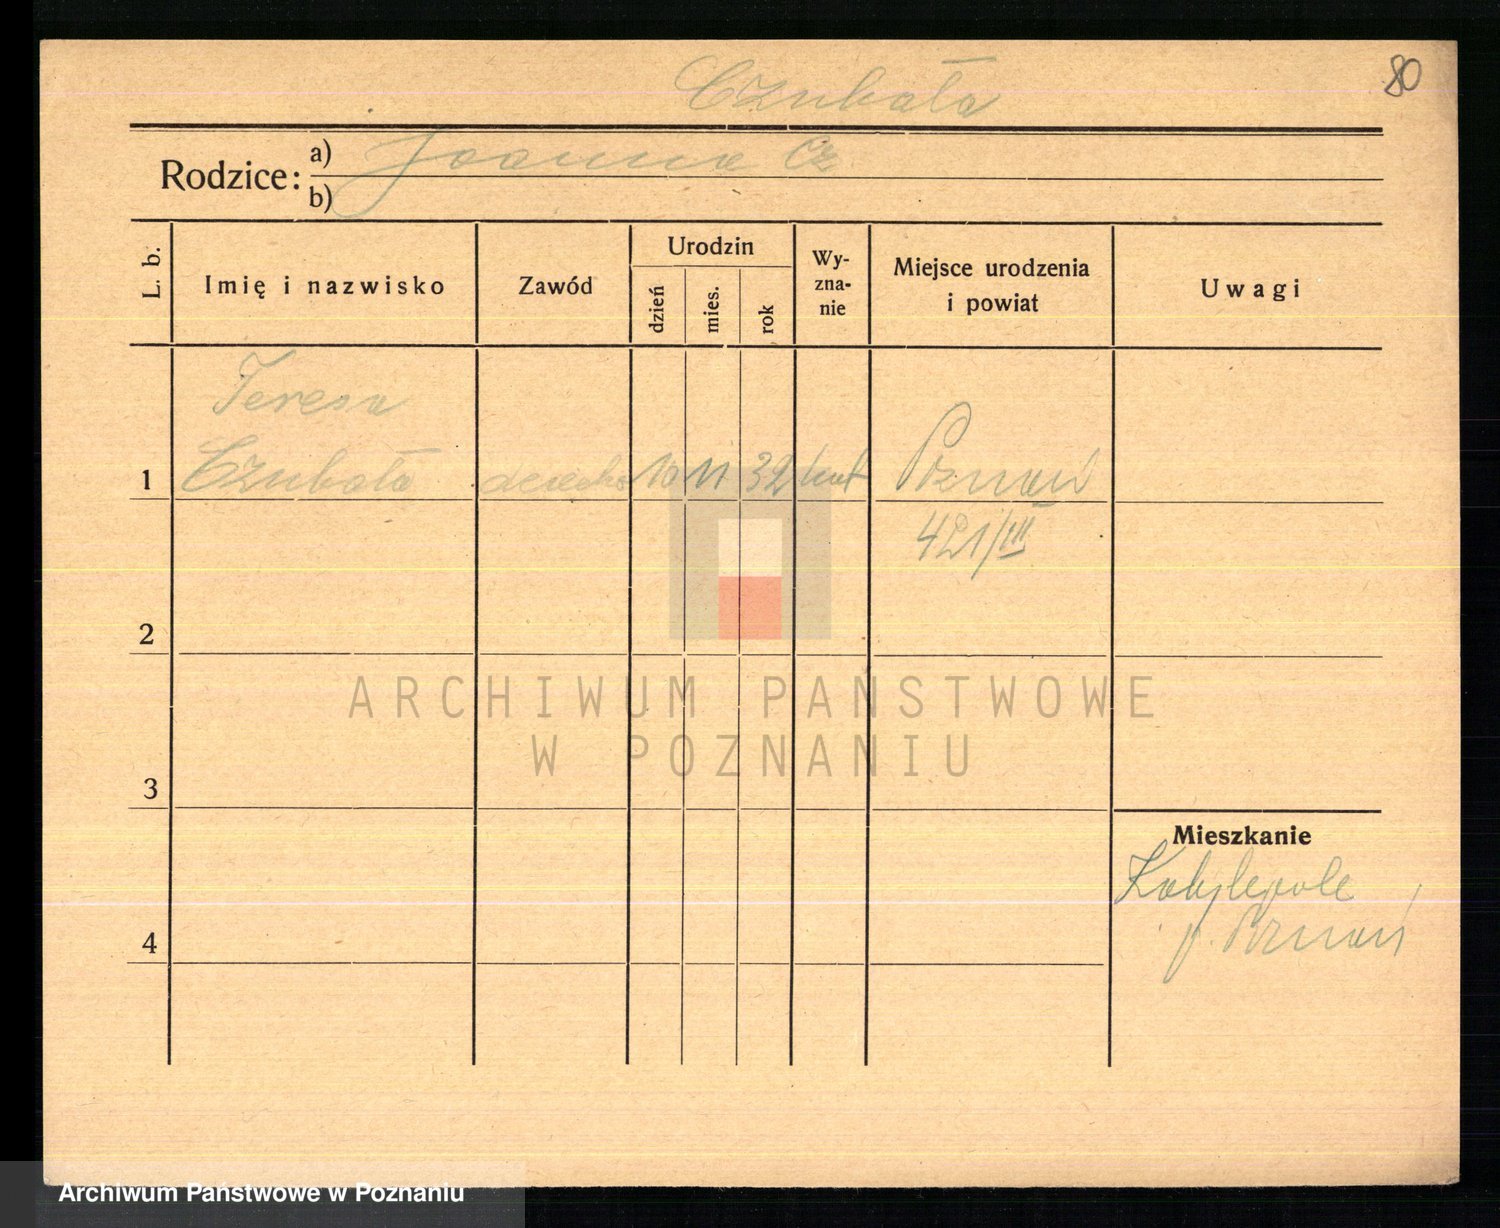 80
Czubała
Rodzice: a) Joanna Cz
b)
L. b.
Imię i nazwisko
Zawód
Urodzin
dzień
mies.
rok
Wy-
zna-
nie
Miejsce urodzenia
i powiat
Uwagi
Teresa
1 Czubała dziecko 10 11 32 kat Poznań
421/III
2
3
4
Mieszkanie
Kobylepole
p. Poznań
ARCHIWUM PAŃSTWOWE
W POZNANIU
Archiwum Państwowe w Poznaniu